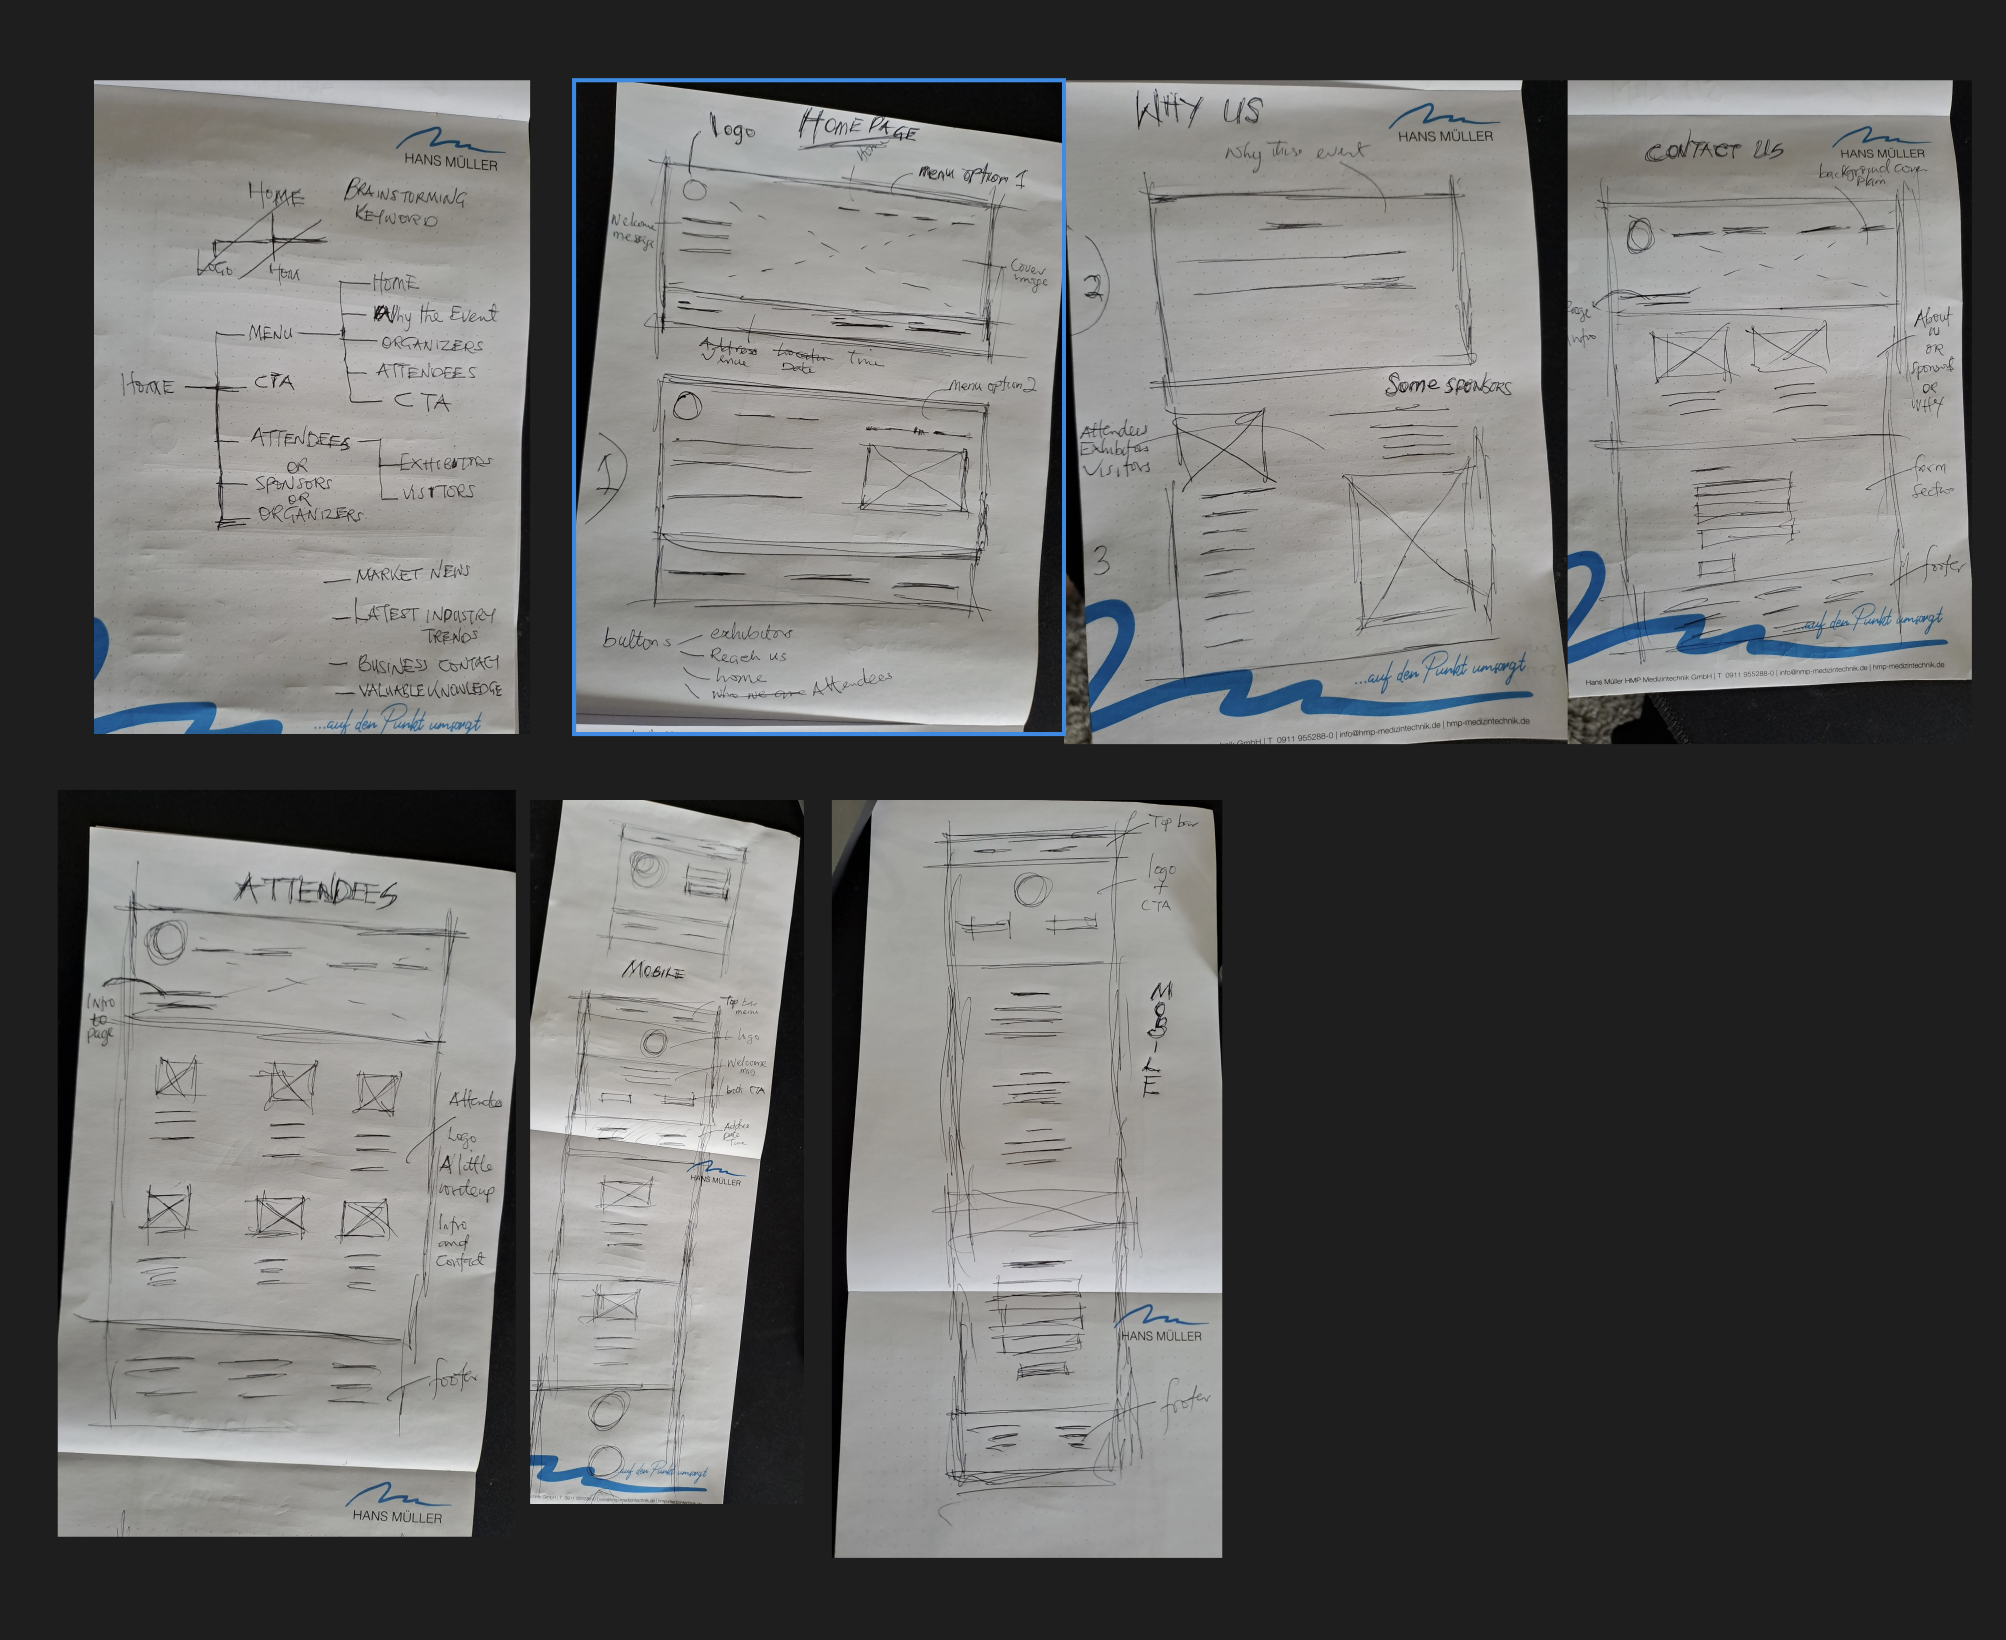 HANS MÜLLER
HOME
BRAINSTORMING
KEYWORD
LOGO
HOME
MENU
HOME
Why the Event
ORGANIZERS
ATTENDEES
CTA
HOME
CTA
ATTENDEES
OR
SPONSORS
OR
ORGANIZERS
EXHIBITORS
VISITORS
MARKET NEWS
LATEST INDUSTRY
TRENDS
BUSINESS CONTACT
VALUABLE KNOWLEDGE
...auf den Punkt umsorgt
logo
HOMEPAGE
Home
menu option 1
Welcome
message
Cover
image
Address
Venue
Location
Date
Time
menu option 2
1
buttons
exhibitors
Reach us
home
who we are Attendees
WHY US
HANS MÜLLER
Why these event
2
Some SPONSORS
Attendees
Exhibitors
Visitors
3
...auf den Punkt umsorgt
GmbH | T 0911 955288-0 | info@hmp-medizintechnik.de | hmp-medizintechnik.de
CONTACT US
HANS MÜLLER
background cover
Page
Intro
About
OR
Sponsors
OR
WHY
form
section
footer
...auf den Punkt umsorgt
Hans Müller HMP Medizintechnik GmbH | T 0911 955288-0 | info@hmp-medizintechnik.de | hmp-medizintechnik.de
ATTENDEES
Intro
to
page
Attendee
Logo
A little
writeup
Intro
and
Contact
footer
HANS MÜLLER
MOBILE
Top bar
menu
logo
Welcome
msg
both CTA
Address
Date
Time
HANS MÜLLER
auf den Punkt umsorgt
Top bar
logo
+
CTA
MOBILE
HANS MÜLLER
footer